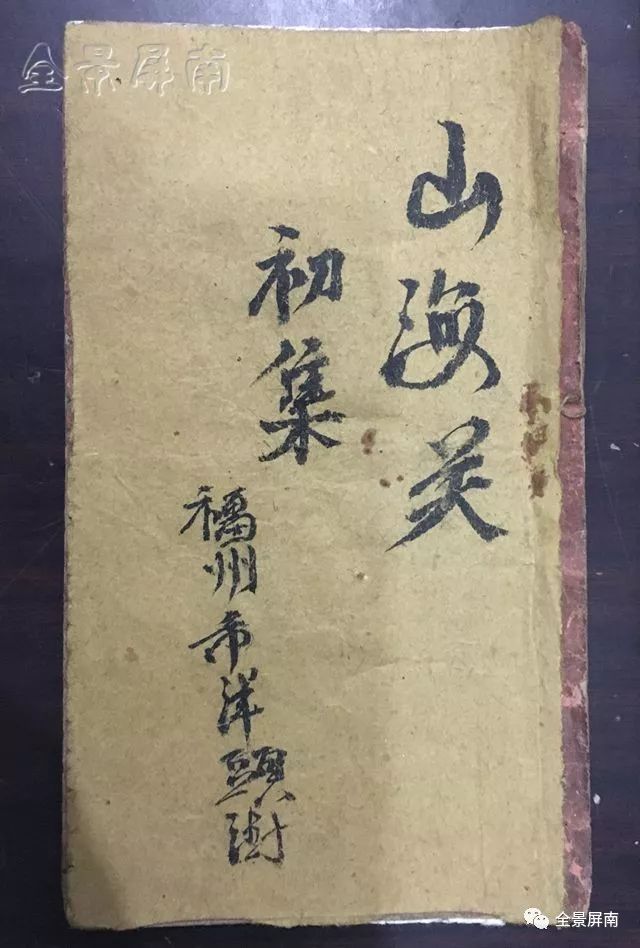 全景屏南
山海关
初集
福州市洋頭街
全景屏南